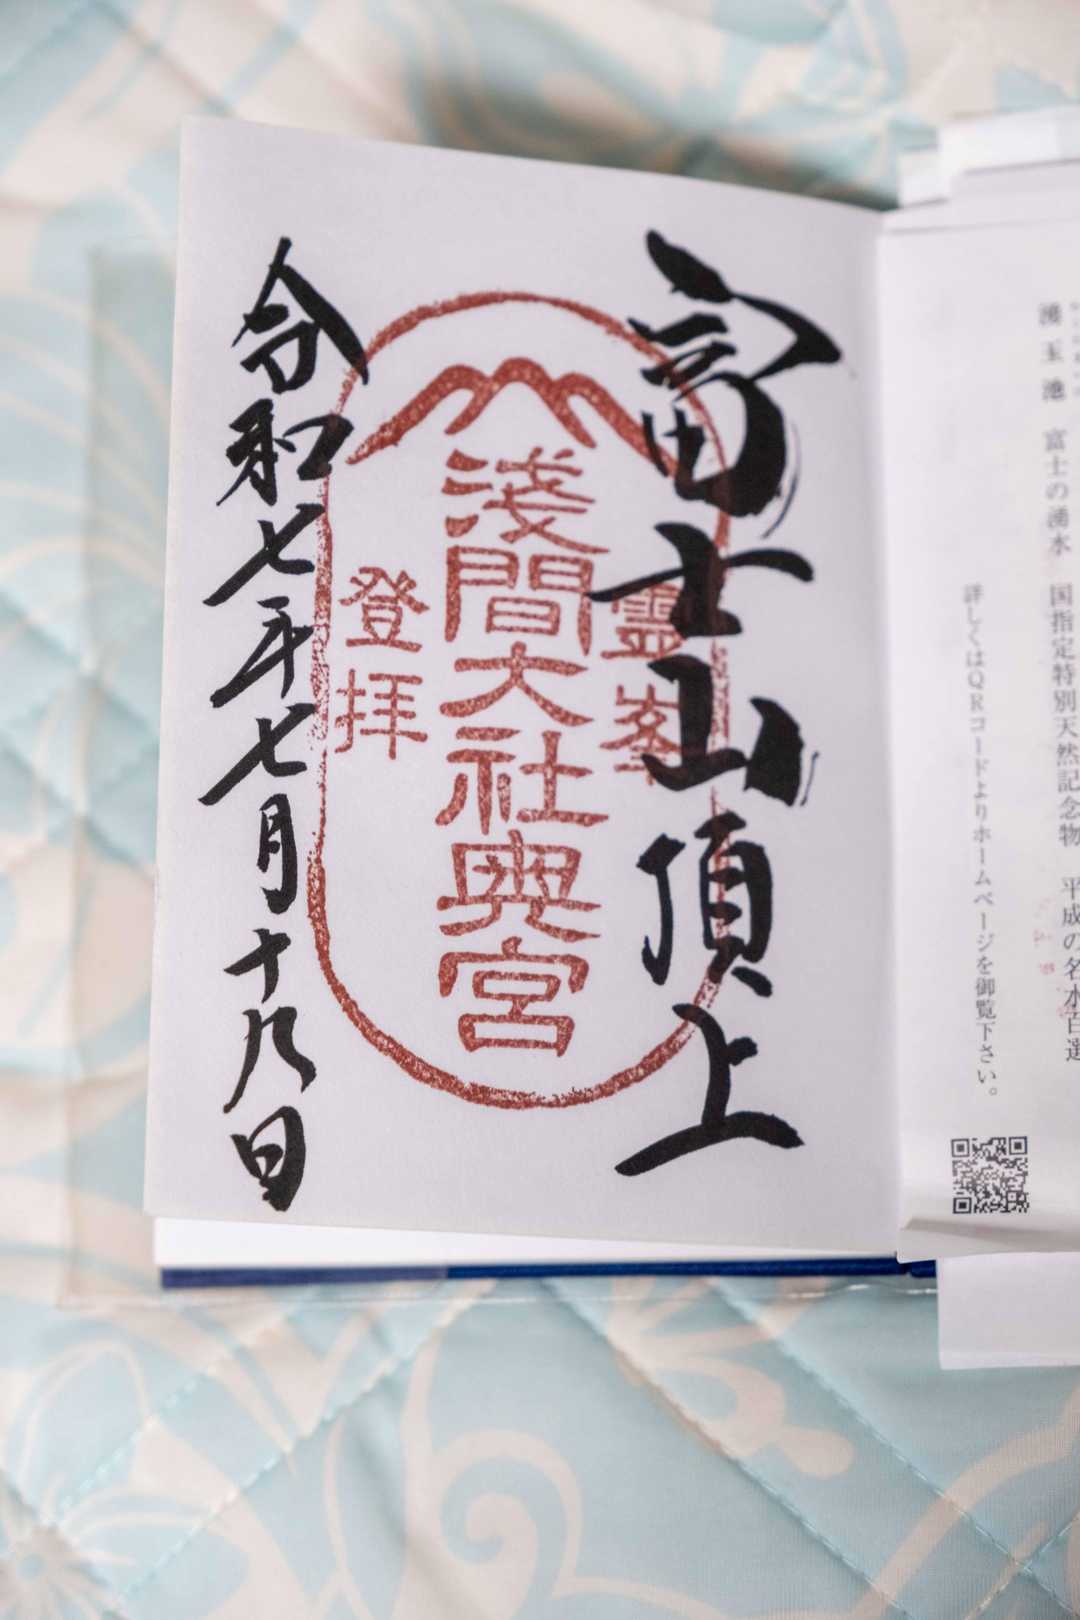 湧玉池 富士の湧水 国指定特別天然記念物 平成の名水百選
詳しくはQRコードよりホームページを御覧下さい。
富士山頂上
霊峯
淺間大社奥宮
登拝
令和七年七月十九日